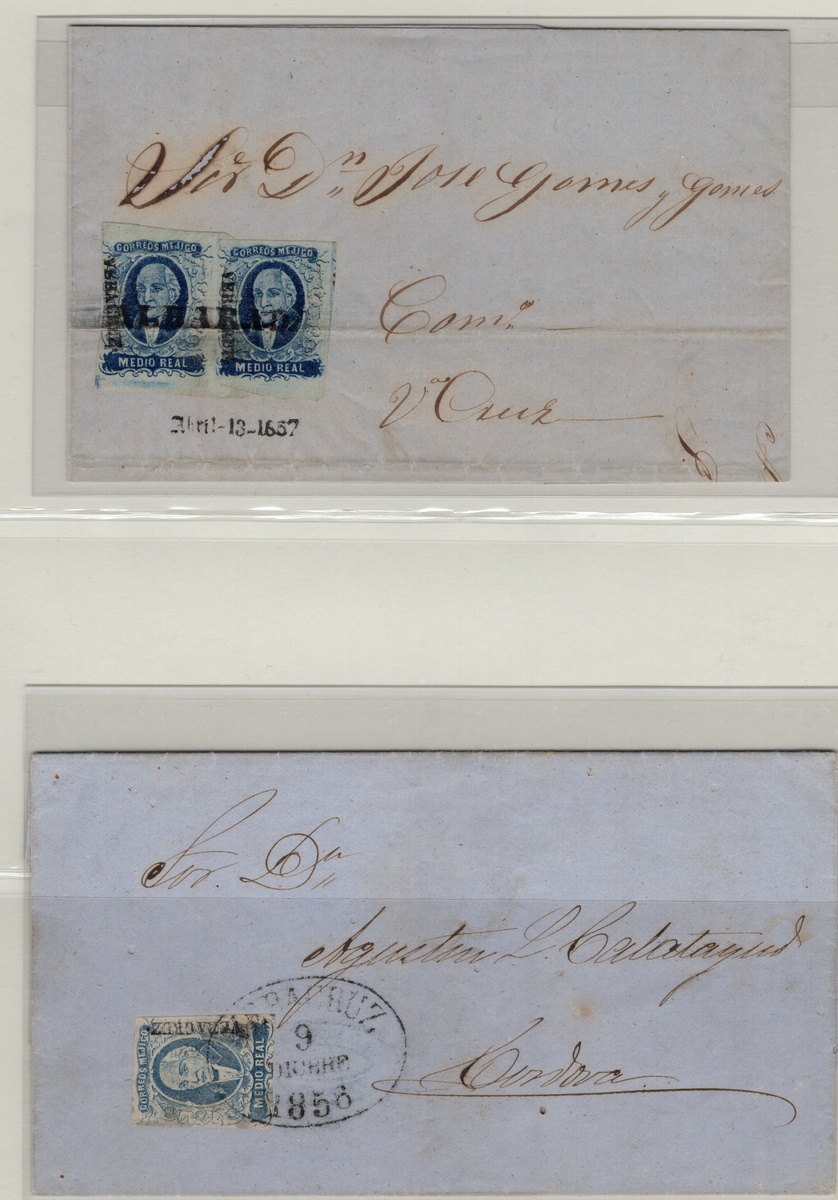 Sor. Dn. Jose Gomes y Gomes
CORREOS MEJICO
VERACRUZ
MEDIO REAL
CORREOS MEJICO
VERACRUZ
MEDIO REAL
ALBARADO
Com.o
Va Cruz
Abril-13-1857
Sor. Dn.
Agustin L. Calatayud
Cordova
CORREOS MEJICO
VERACRUZ
MEDIO REAL
VERACRUZ
9
DICBRE
1856